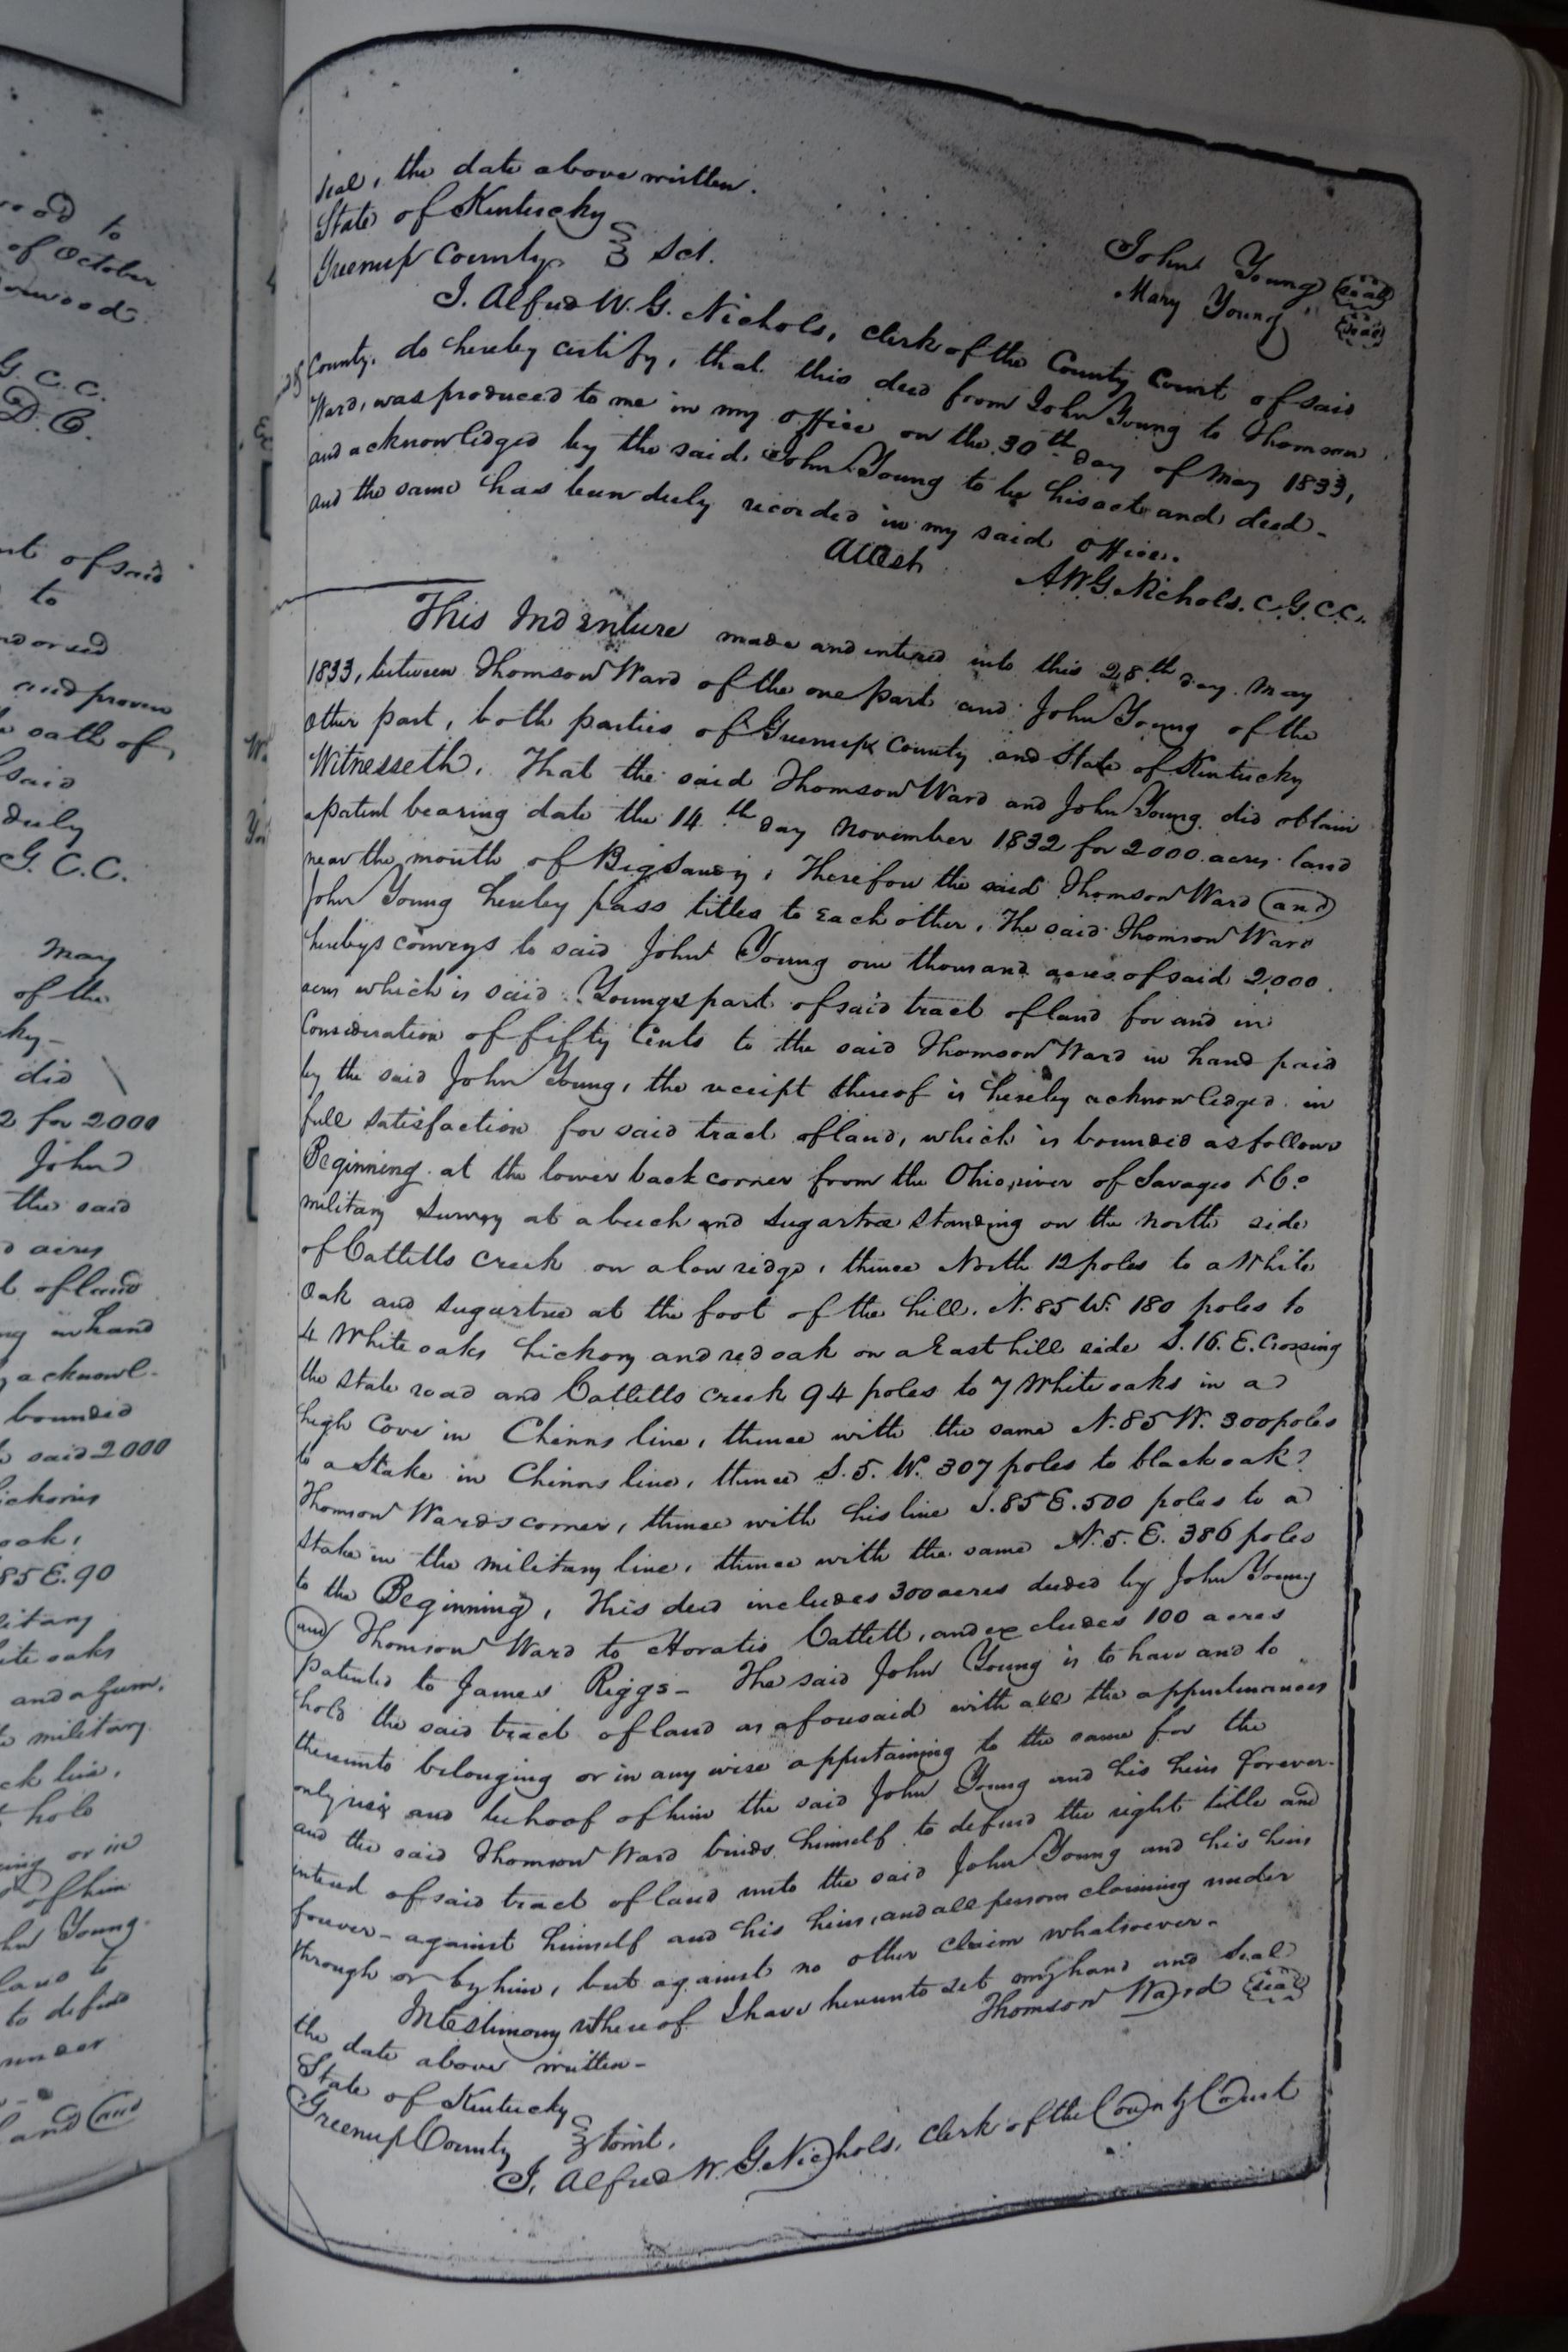 ood to
of October
orwood
G. C. C.
D. C.
nt of said
to
ndorsed
and proven
oath of
said
duly
G. C. C.
May
of the
cky—
did
2 for 2000
John
the said
acres
t of land
in hand
acknowl-
bounded
said 2000
ickories
oak,
85 E. 90
litary
ite oaks
and a gum,
military
ck line,
hold
ing or in
of him
hn Young-
land to
to defend
under
and and
seal, the date above written.
John Young, seal
Mary Young seal
State of Kentucky
Greenup County Sct.
I. Alfred W. G. Nichols, Clerk of the County Court of said
County, do hereby certify, that this deed from John Young to Thomson
Ward, was produced to me in my office on the 30th day of May 1833,
and acknowledged by the said John Young to be his act and deed-
and the same has been duly recorded in my said office.
Attest A. W. G. Nichols. C. G. C. C.
This Indenture made and entered into this 28th day May
1833, between Thomson Ward of the one part and John Young of the
other part, both parties of Greenup County and State of Kentucky
Witnesseth, That the said Thomson Ward and John Young did obtain
a patent bearing date the 14th day November 1832 for 2000 acres land
near the mouth of Big Sandy, Therefore the said Thomson Ward and
John Young hereby pass titles to Each other, The said Thomson Ward
hereby conveys to said John Young one thousand acres of said 2,000
acres which is said Youngs part of said tract of land for and in
Consideration of fifty Cents to the said Thomson Ward in hand paid
by the said John Young, the receipt thereof is hereby acknowledged in
full satisfaction for said tract of land, which is bounded as follows
Beginning at the lower back corner from the Ohio river of Savages & Co
military Survey at a beech and Sugartree Standing on the north side
of Catletts Creek on a low ridge, thence North 12 poles to a White
Oak and Sugartree at the foot of the hill, N. 85 W. 180 poles to
4 White oaks hickory and red oak on a East hill side S. 16. E. Crossing
the State road and Catletts Creek 94 poles to 7 White oaks in a
high Cove in Chinns line, thence with the same N. 85 W. 300 poles
to a Stake in Chinns line, thence S. 5. W. 307 poles to black oak
Thomson Wards corner, thence with his line S. 85 E. 500 poles to a
Stake in the military line, thence with the same N. 5. E. 386 poles
to the Beginning, This deed includes 300 acres deeded by John Young
and Thomson Ward to Horatio Catlett, and excludes 100 acres
patented to James Riggs- The said John Young is to have and to
hold the said tract of land as aforesaid with all the appurtenances
thereunto belonging or in any wise appertaining to the same for the
only use and behoof of him the said John Young and his heirs forever-
and the said Thomson Ward binds himself to defend the right title and
interest of said tract of land unto the said John Young and his heirs
forever- against himself and his heirs, and all persons claiming under
through or by him, but against no other claim whatsoever-
In testimony whereof I have hereunto set my hand and seal
the date above written- Thomson Ward seal
State of Kentucky
Greenup County towit,
I, Alfred W. G. Nichols, Clerk of the County Court